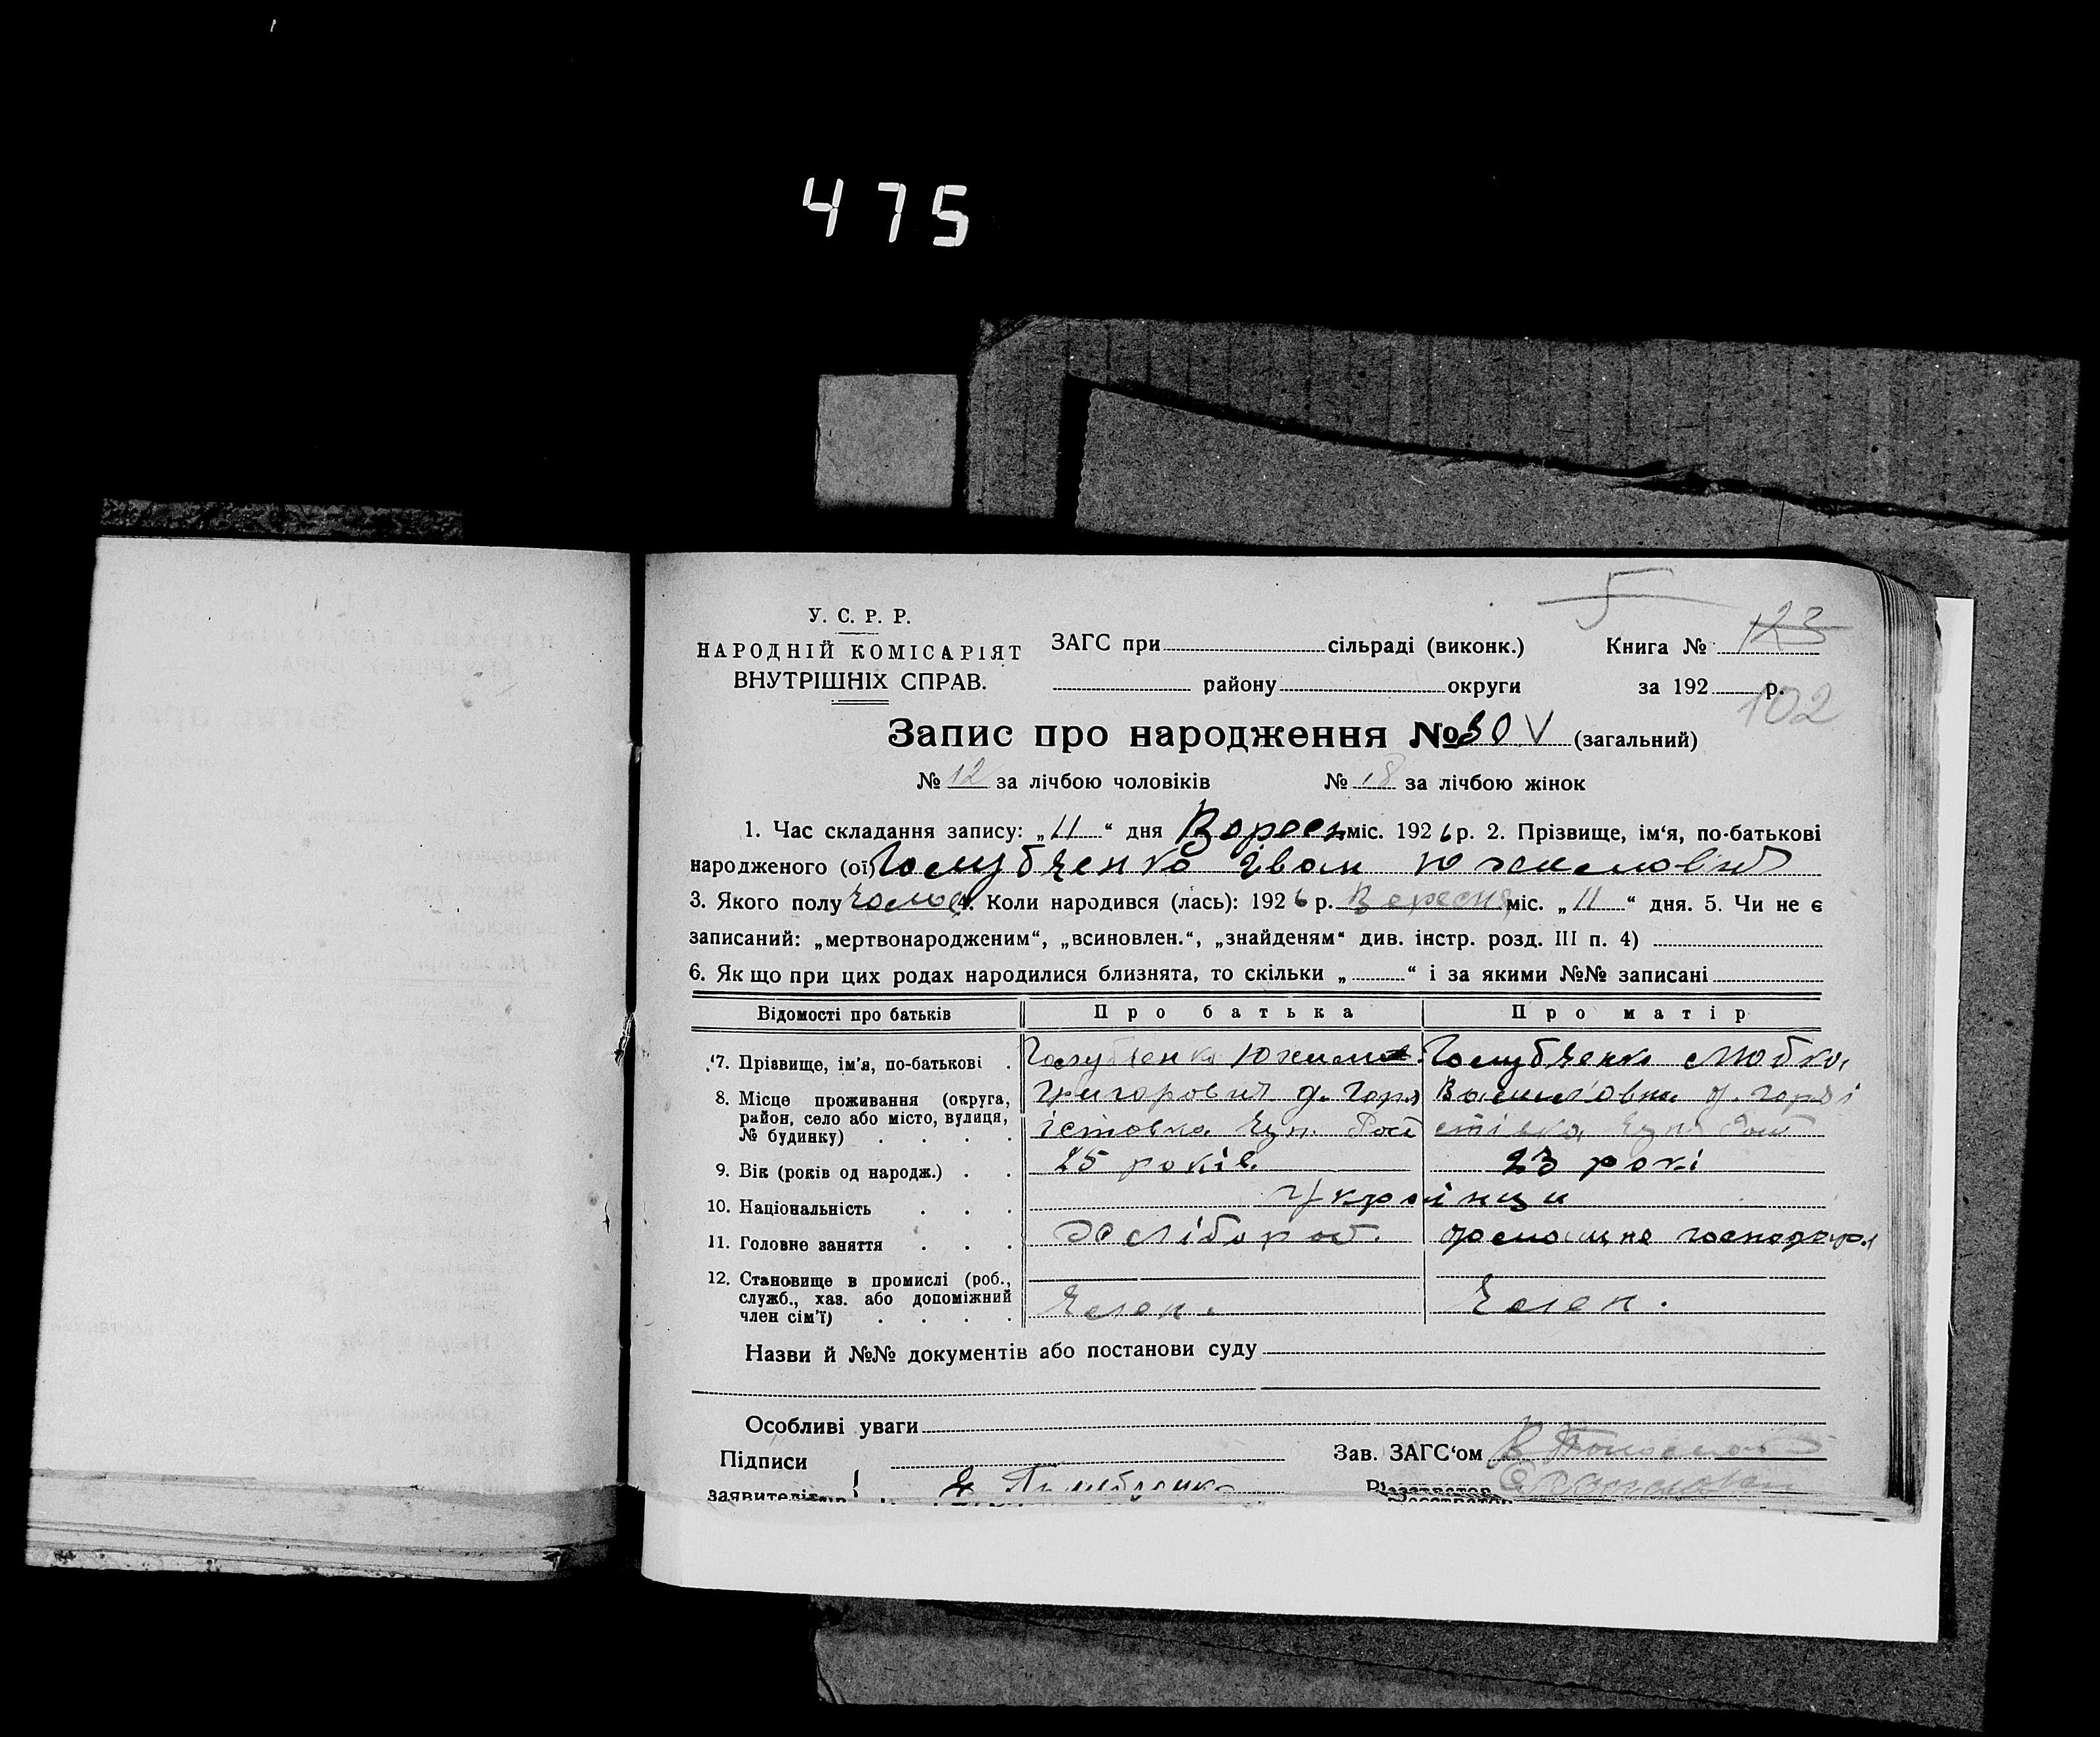 475
5
У. С. Р. Р.
НАРОДНІЙ КОМІСАРІЯТ
ВНУТРІШНІХ СПРАВ.
ЗАГС при сільраді (виконк.) Книга № 123
району округи за 192 р.
102
Запис про народження № 30 V (загальний)
№ 12 за лічбою чоловіків № 18 за лічбою жінок
1. Час складання запису: „ 11 “ дня міс. 1926 р. 2. Прізвище, ім‘я, по-батькові
народженого (ої) Голубченко Іван
3. Якого полу 4. Коли народився (лась): 1926 р. Вересня міс. „ 11 “ дня. 5. Чи не є
записаний: „мертвонародженим“, „всиновлен.“, „знайденям“ див. інстр. розд. III п. 4)
6. Як що при цих родах народилися близнята, то скільки „ “ і за якими №№ записані
Відомості про батьків Про батька Про матір
7. Прізвище, ім’я, по-батькові . Голубченко Голубченко Любка
8. Місце проживання (округа,
район, село або місто, вулиця,
№ будинку) . . . .
9. Вік (років од народж.) . . 25 років. 23 рокі
10. Національність . . . Українци
11. Головне заняття . . . Хлібороб.
12. Становище в промислі (роб.,
служб., хаз. або допоміжний
член сім’ї) . . . . Член. Член.
Назви й №№ документів або постанови суду
Особливі уваги
Підписи Зав. ЗАГС‘ом
заявителів